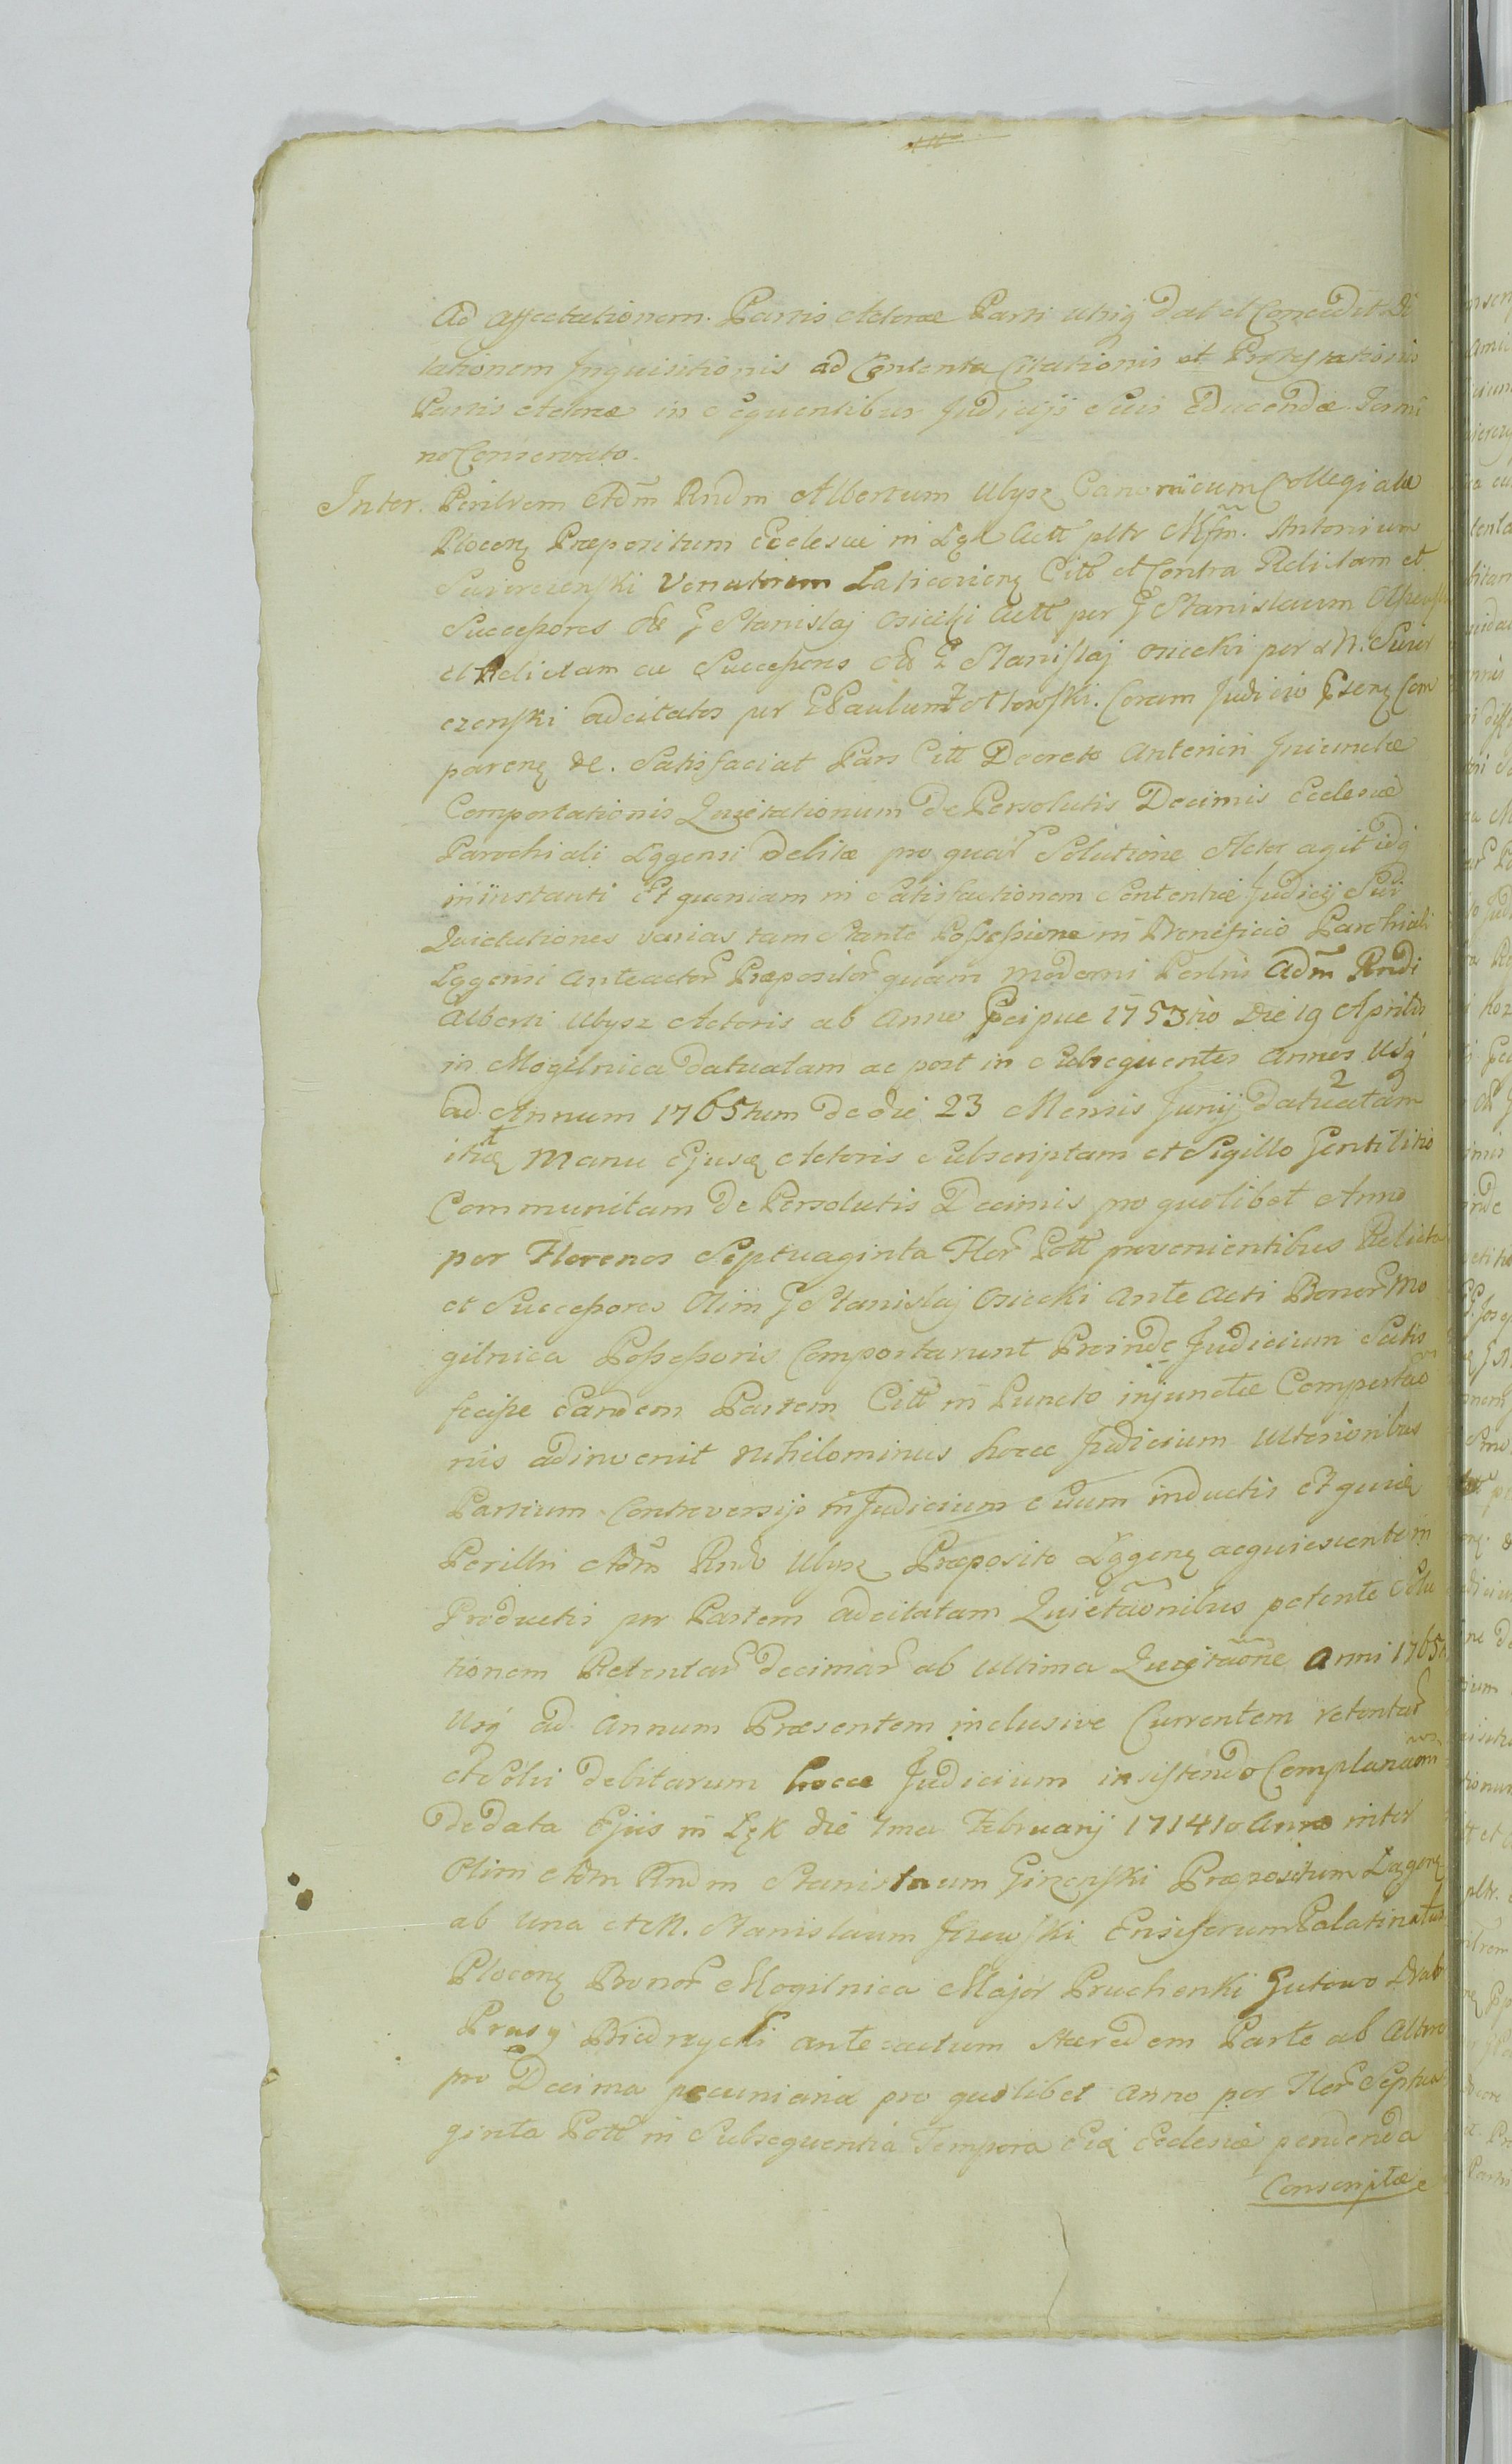 Ad affectationem Partis Actorae Parti utriq dat et Concedit Di
lationem Inquisitionis ad Contenta Citationis et Protestationis
Partis Actorae in Sequentibus Judicijs Suis Educendae Termi
no Conservato.
Inter Perillrem Adm Rndm Albertum Ulysz Canonicum Collegiatae
Plocens Praepositum Ecclesiae in Lęk Actt pltr Mfm. Antonium
Venatorem Laticoviens Citt et Contra Relictam et
Successores Ol G Stanislaj Osiecki Actt per G Stanislaum
et Relictam ac Successores Ol G Stanislaj Osiecki per M. Suier
czenski adcitatos per G Paulum. Coram Judicio Psens Com
parens &c. Satisfaciat Pars Citt Decreto Anteriori Injunctae
Comportationis Quietationum de Persolutis Decimis Ecclesiae
Parochiali Lęgensi debitae pro quar Solutione Actor agit idq
in instanti Et quoniam in Satisfactionem Sententiae Judicij Sui
Quietationes varias tam Stante Possessione in Beneficio Parochiali
Lęgensi anteactor Praepositor quam moderni Perlris Adm Rndi
Alberti Ulysz Actoris ab Anno Pcipue 1753tio Die 19 Aprilis
in Mogilnica datuatam ac post in Subsequentes Annos Usq
ad Annum 1765tum de die 23 Mensis Junij datuatam
itq Manu Ejusd Actoris Subscriptam et Sigillo Gentilitio
Communitam de Persolutis Decimis pro quolibet Anno
per Florenos Septuaginta Flor Poll provenientibus Relicta
et Successores Olim G Stanislaj Osiecki Ante Acti Bonor Mo
gilnica Possessoris Comportarunt Proinde Judicium Satis
fecisse Eandem Partem Citt in Puncto injunctae Comportao
nis adinvenit Nihilominus hocce Judicium Ulterioribus
Partium Controversijs in Judicium Suum inductis Et quia
Perillri Adm Rndo Ulysz Praeposito Lęgens acquiescente in
Productis per Partem adcitatam Quietaonibus petente Solu
tionem Retentar Decimar ab Ultima Quietaone Anni 1765
Usq ad Annum Praesentem inclusive Currentem retentar
et Solvi debitarum hocce Judicium insistendo Complanaoni
de data Ejus in Lęk die 7ma Februarij 1714to Anno inter
Olim Adm Rndm Stanislaum Girzenski Praepositum Lęgens
ab una et M. Stanislaum Ensiferum Palatinatus
Plocens Bonor Mogilnica Major Pruchenki Gutowo
Prusy Biedrzycki anteactum Haeredem Parte ab Altera
pro Decima pecuniaria pro quolibet Anno per Flor Septua
ginta Poll in Subsequentia Tempora Eid Ecclesiae pendenda
Conscriptae